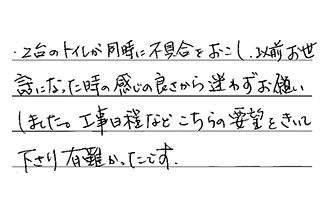 ・2台のトイレが同時に不具合をおこし、以前お世
話になった時の感じの良さから迷わずお願い
しました。工事日程などこちらの要望をきいて
下さり有難かったです。